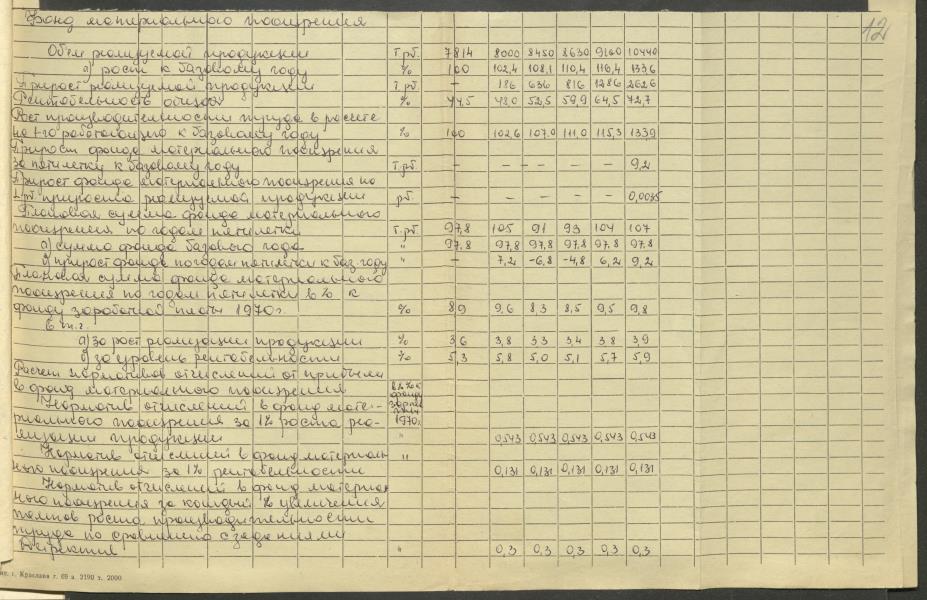 Фонд материального поощрения
12
Объём реализуемой продукции т.рб. 7814 8000 8450 8630 9160 10440
а) рост к базовому году % 100 102,4 108,1 110,4 116,4 133,6
Прирост реализуемой продукции т.рб. – 186 636 816 1286 2626
Рентабельность общая % 44,5 48,0 52,5 59,9 64,5 72,7
Рост производительности труда в расчете
на 1-го работающего к базовому году % 100 102,6 107,0 111,0 115,3 133,9
Прирост фонда материального поощрения
за пятилетку к базовому году т.рб. – – – – – 9,2
Прирост фонда материального поощрения на
1 рб. прироста реализуемой продукции рб. – – – – – 0,0035
Плановая сумма фонда материального
поощрения по годам пятилетки т.рб. 97,8 105 91 93 104 107
а) сумма фонда базового года 97,8 97,8 97,8 97,8 97,8 97,8
б) прирост фонда по годам пятилетки к баз. году " – 7,2 -6,8 -4,8 6,2 9,2
Плановая сумма фонда материального
поощрения по годам пятилетки в % к
фонду заработной платы 1970 г. % 8,9 9,6 8,3 8,5 9,5 9,8
в т.ч.
а) за рост реализации продукции % 3,6 3,8 3,3 3,4 3,8 3,9
б) за уровень рентабельности % 5,3 5,8 5,0 5,1 5,7 5,9
Расчет нормативов отчислений от прибыли
в фонд материального поощрения в % к фонду зарпл. 1970 г.
Норматив отчислений в фонд мате-
риального поощрения за 1% роста реа-
лизации продукции " 0,543 0,543 0,543 0,543 0,543
Норматив отчислений в фонд материаль
ного поощрения за 1% рентабельности " 0,131 0,131 0,131 0,131 0,131
Норматив отчислений в фонд материаль
ного поощрения за каждый % увеличения
темпов роста производительности
труда по сравнению с заданиями
Директив " 0,3 0,3 0,3 0,3 0,3
г. Краслава г. 69 з. 2190 т. 2000